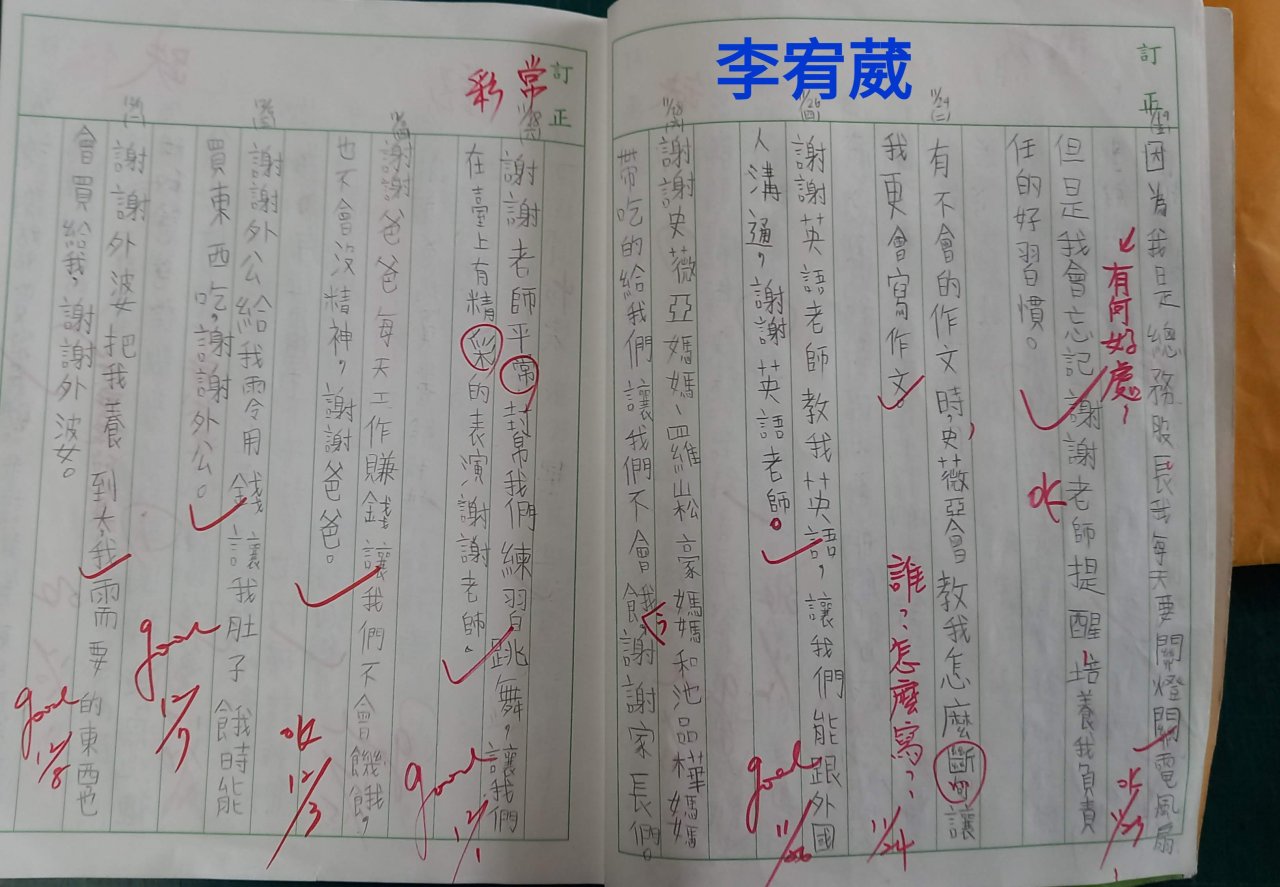 李宥葳
訂正
11/19
因為我是總務股長我每天要關燈關電風扇
有何好處,
但是我會忘記謝謝老師提醒培養我負責
任的好習慣。
OK
OK
11/23
11/24
(二)
有不會的作文時,史薇亞會教我怎麼斷句讓
誰?怎麼寫?
11/24
我更會寫作文。
11/26
(四)
謝謝英語老師教我英語,讓我們能跟外國
人溝通,謝謝英語老師。
good
11/26
謝謝史薇亞媽媽、羅崧豪媽媽和池品樺媽媽
帶吃的給我們讓我們不會餓,謝謝家長們。
訂正
常
彩
謝謝老師平常封幫我們練習跳舞,讓我們
在臺上有精彩的表演謝謝老師。
good
12/1
謝謝爸爸每天工作賺錢讓我們不會饑餓,
也不會沒精神,謝謝爸爸。
OK
12/3
謝謝外公給我零用錢讓我肚子餓時能
買東西吃,謝謝外公。
good
12/7
謝謝外婆把我養到大,我需要的東西也
會買給我,謝謝外婆。
good
12/8